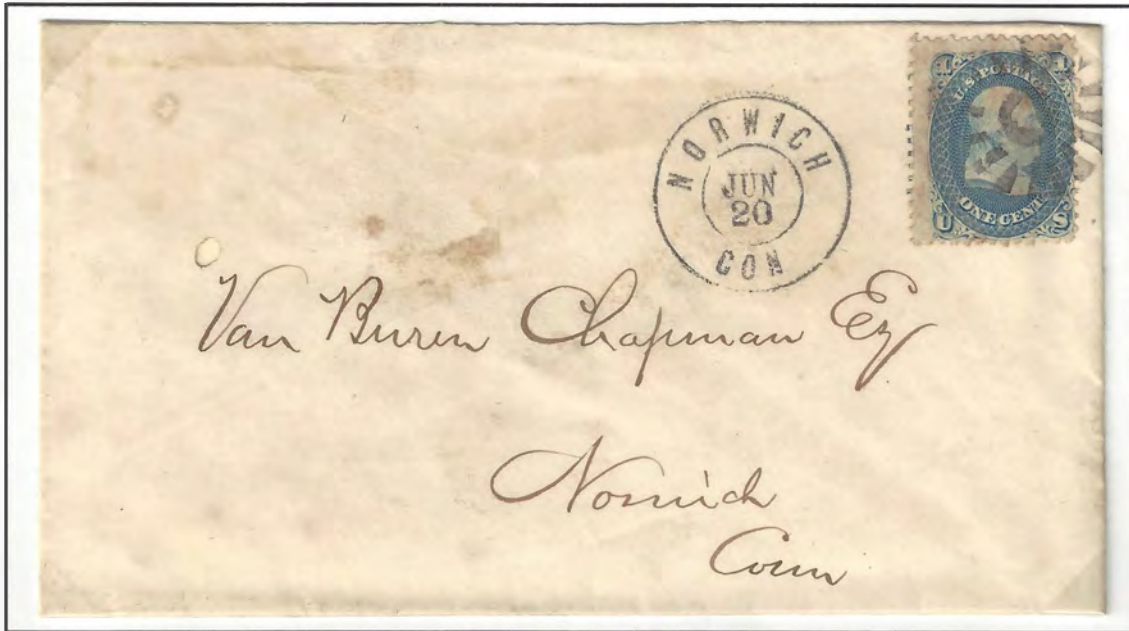 NORWICH
JUN
20
CON
1 1
U.S. POSTAGE
ONE CENT
U S
Van Buren Chapman Eq
Norwich
Conn